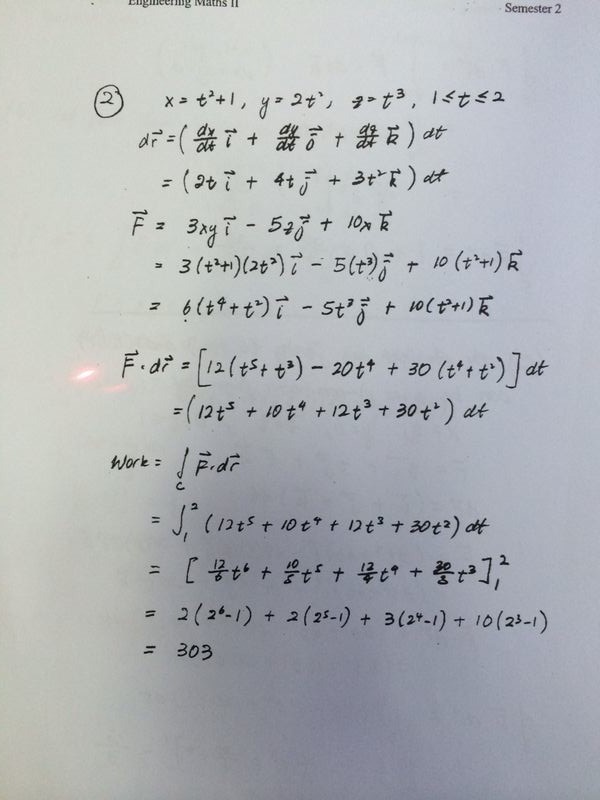 Engineering Maths II
Semester 2
② x = t²+1, y = 2t², z = t³, 1 ≤ t ≤ 2
dr⃗ = ( dx/dt i⃗ + dy/dt j⃗ + dz/dt k⃗ ) dt
= (2t i⃗ + 4t j⃗ + 3t² k⃗ ) dt
F⃗ = 3xy i⃗ - 5z j⃗ + 10x k⃗
= 3(t²+1)(2t²) i⃗ - 5(t³) j⃗ + 10 (t²+1) k⃗
= 6(t⁴+t²) i⃗ - 5t³ j⃗ + 10(t²+1) k⃗
F⃗·dr⃗ = [12(t⁵+t³) - 20t⁴ + 30(t⁴+t²)] dt
= (12t⁵ + 10t⁴ + 12t³ + 30t²) dt
Work = ∫_C F⃗·dr⃗
= ∫₁² (12t⁵ + 10t⁴ + 12t³ + 30t²) dt
= [ 12/6 t⁶ + 10/5 t⁵ + 12/4 t⁴ + 30/3 t³ ]₁²
= 2(2⁶-1) + 2(2⁵-1) + 3(2⁴-1) + 10(2³-1)
= 303